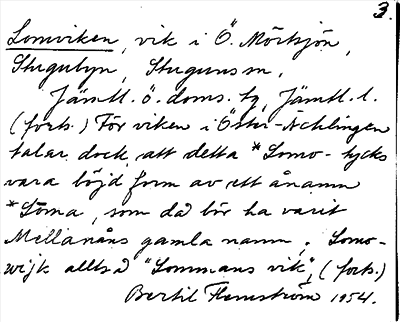 3.
Lomviken, vik i Ö. Mörtsjön,
Stugubyn, Stuguns sn,
Jämtl. ö. doms. tg, Jämtl. l.
(forts.) För viken i Öster-Ächlingen
talar dock, att detta *Somo- tycks
vara böjd form av ett ånamn
*Sōma, som då bör ha varit
Mellanåns gamla namn; Somo-
wijk alltså "Sommans vik", (forts.)
Bertil Flemström 1954.